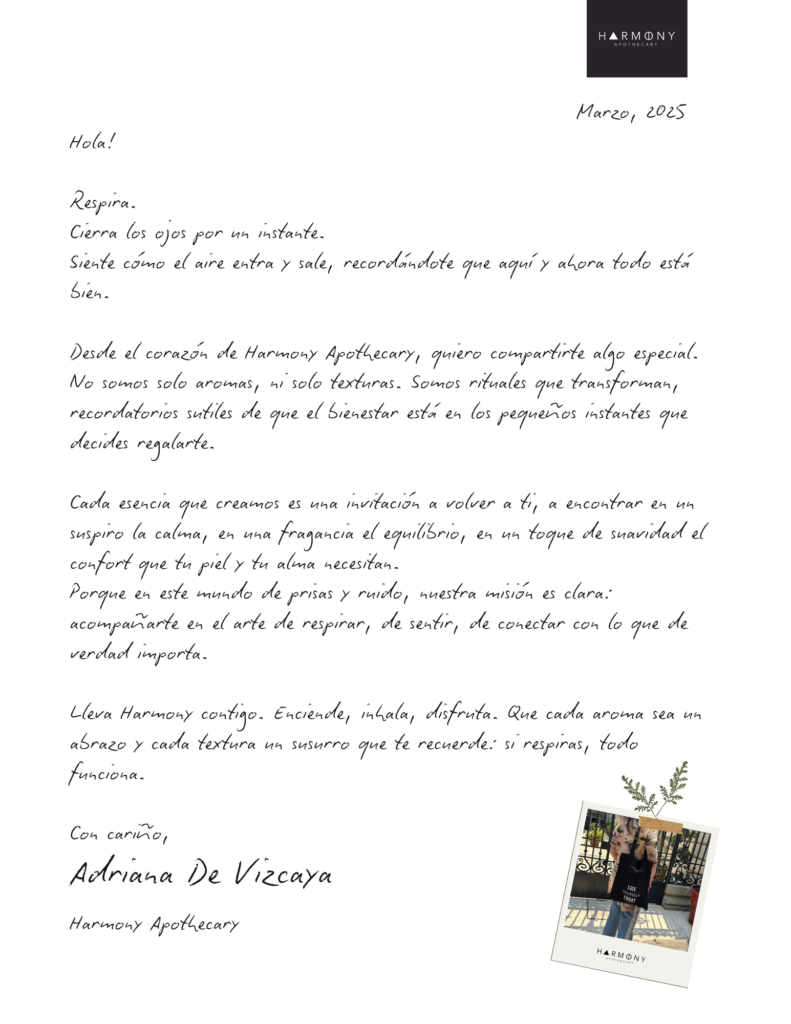 HARMONY
APOTHECARY
Marzo, 2025
Hola!
Respira.
Cierra los ojos por un instante.
Siente cómo el aire entra y sale, recordándote que aquí y ahora todo está
bien.
Desde el corazón de Harmony Apothecary, quiero compartirte algo especial.
No somos solo aromas, ni solo texturas. Somos rituales que transforman,
recordatorios sutiles de que el bienestar está en los pequeños instantes que
decides regalarte.
Cada esencia que creamos es una invitación a volver a ti, a encontrar en un
suspiro la calma, en una fragancia el equilibrio, en un toque de suavidad el
confort que tu piel y tu alma necesitan.
Porque en este mundo de prisas y ruido, nuestra misión es clara:
acompañarte en el arte de respirar, de sentir, de conectar con lo que de
verdad importa.
Lleva Harmony contigo. Enciende, inhala, disfruta. Que cada aroma sea un
abrazo y cada textura un susurro que te recuerde: si respiras, todo
funciona.
Con cariño,
Adriana De Vizcaya
Harmony Apothecary
TODAY
HARMONY
APOTHECARY